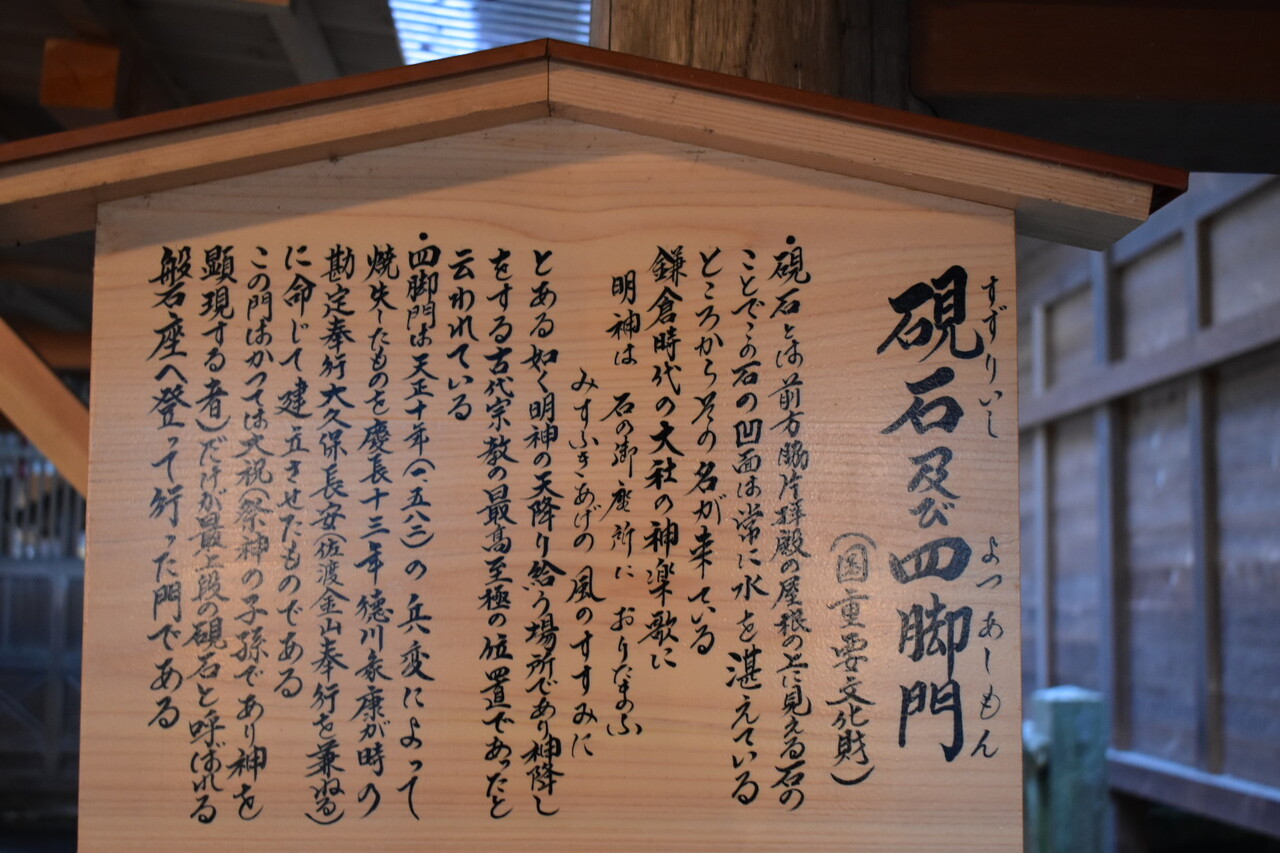 硯石及び四脚門
すずりいし
よつあしもん
(国重要文化財)
・硯石とは前方脇片拝殿の屋根の上に見える石の
ことでこの石の凹面は常に水を湛えている
ところからその名が来ている
鎌倉時代の大社の神楽歌に
明神は 石の御座所に おりたまふ
みすふきあげの 風のすすみに
とある如く明神の天降り給う場所であり神降し
をする古代宗教の最高至極の位置であったと
云われている
・四脚門は天正十年(一五八二)の兵変によって
焼失したものを慶長十三年徳川家康が時の
勘定奉行大久保長安(佐渡金山奉行を兼ねる)
に命じて建立させたものである
この門はかつては大祝(祭神の子孫であり神を
顕現する者)だけが最上段の硯石と呼ばれる
般石座へ登って行った門である